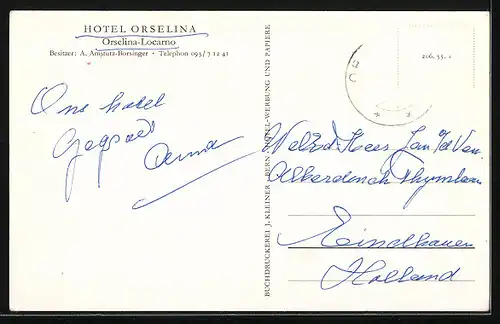 HOTEL ORSELINA
Orselina-Locarno
Besitzer: A. Amstutz-Borsinger • Telephon 093/7 12 41
Ons hotel
BUCHDRUCKEREI J. KLEINER, BERN
-WERBUNG UND PAPIERE
206.55.1
Jan
Alberdinck Thijmlaan
Eindhoven
Holland